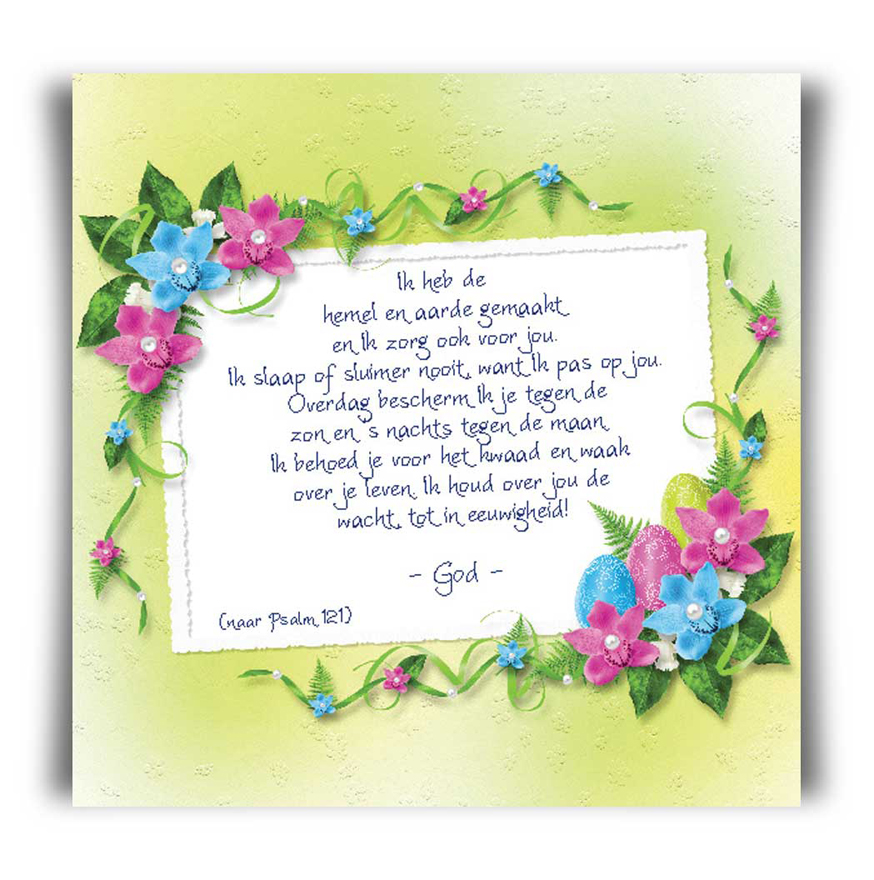 Ik heb de
hemel en aarde gemaakt
en Ik zorg ook voor jou.
Ik slaap of sluimer nooit, want Ik pas op jou.
Overdag bescherm Ik je tegen de
zon en 's nachts tegen de maan
Ik behoed je voor het kwaad en waak
over je leven. Ik houd over jou de
wacht, tot in eeuwigheid!
- God -
(naar Psalm 121)